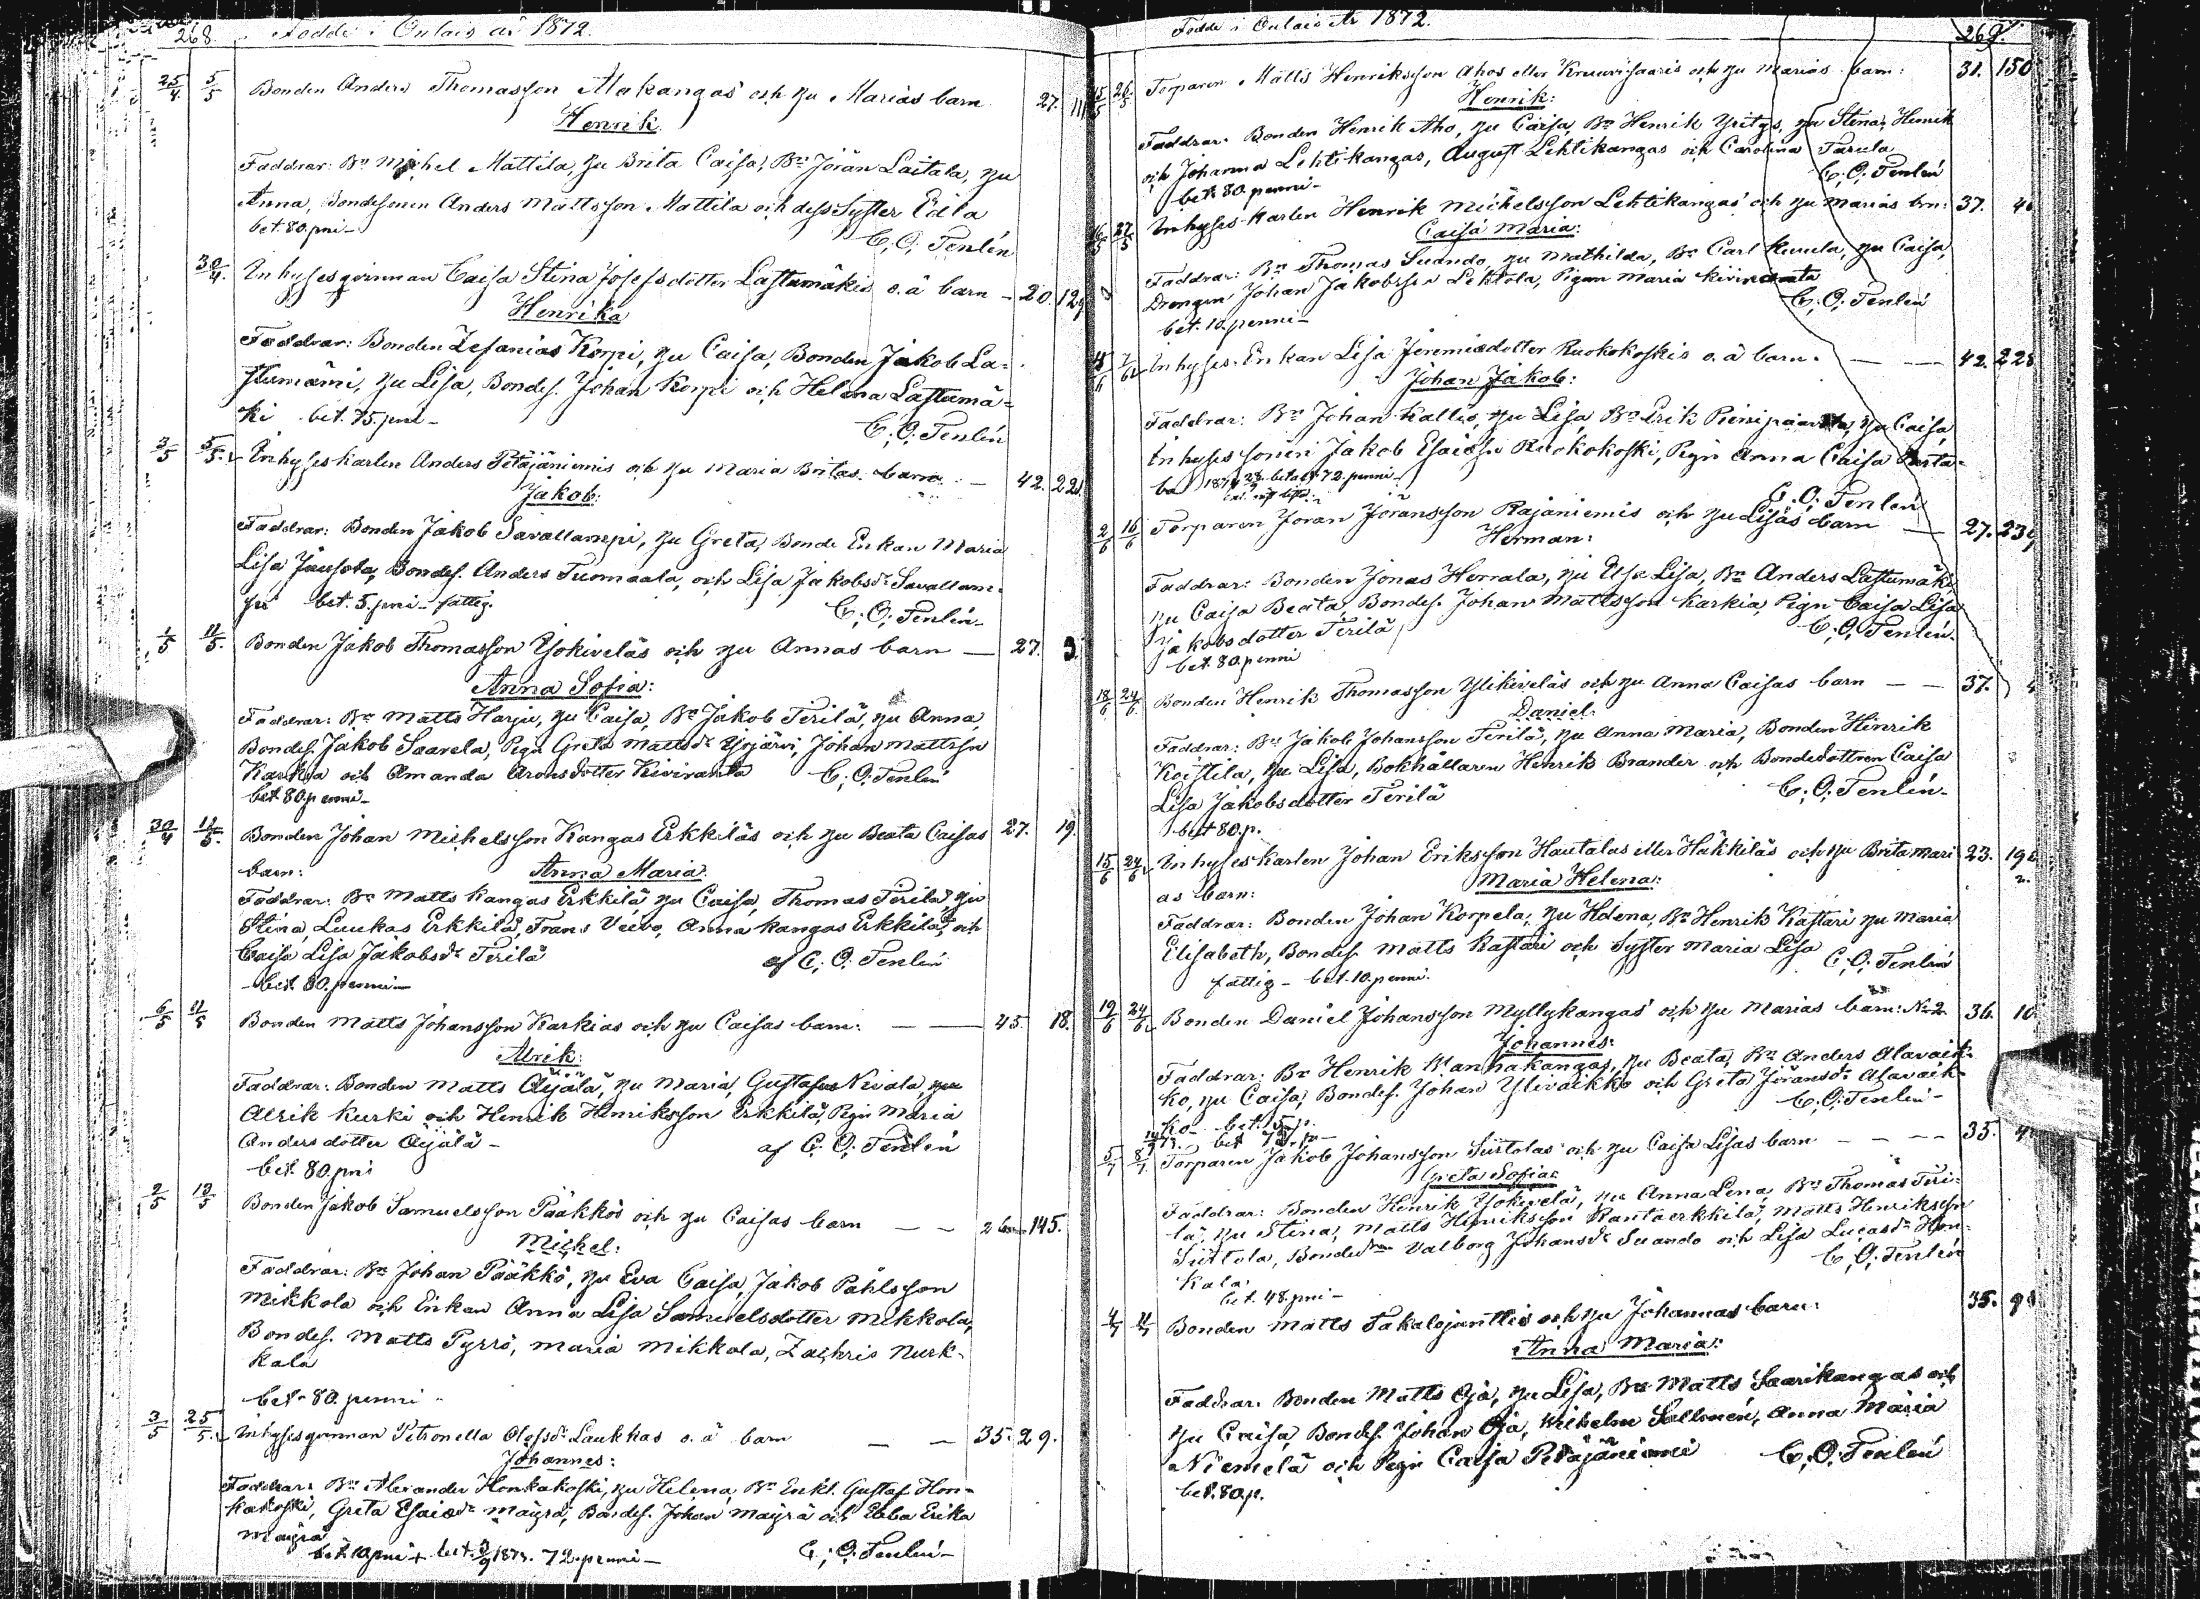 268. Födde i Oulais år 1872.
25/4 5/5 Bonden Anders Thomasson Makangas och hu Marias barn 27. 11
Henrik
Faddrar: Bn Michel Mattila, hu Brita Caisa, Bn Jöran Laitala, hu
Anna, Bondesonen Anders Mattsson Mattila och dess Syster Edla
bet. 80. pni - C. O. Tenlén
30/4. Inhysesqvinnan Caisa Stina Josefsdotter Lastumäkis o. ä barn - 20. 129
Henrika
Faddrar: Bonden Zefanias Korpi, hu Caisa, Bonden Jakob La=
stumämi, hu Lisa, Bondes. Johan Korpi och Helena Lastumä=
ki bet. 75. pni - C. O. Tenlén
3/5 5/5. Inhyseskarlen Anders Petäjäniemis och hu Maria Britas barn - 42. 221
Jakob:
Faddrar: Bonden Jakob Savallampi, hu Greta, Bonde Enkan Maria
Lisa Jäusola, Bondes. Anders Tuomaala, och Lisa Jakobsdr Savallam=
pi bet. 5. pni - fattig. C. O. Tenlén -
1/5 11/5. Bonden Jakob Thomasson Yokiveläs och hu Annas barn - 27. 3.
Anna Sofia:
Faddrar: Bn Matts Harju, hu Caisa, Bn Jakob Terilä, hu Anna,
Bondes. Jakob Saarela, Pign Greta Mattsdr Ypjärvi, Johan Mattsson
Karkia och Amanda Aronsdotter Kiviranta C. O. Tenlén
bet 80. penni -
30/4 11/5. Bonden Johan Michelsson Kangas Erkkiläs och hu Beata Caisas 27. 19.
barn: Anna Maria.
Faddrar: Bn Matts Kangas Erkkilä hu Caisa, Thomas Terilä, hu
Stina, Luukas Erkkilä, Frans Veivo, Anna Kangas Erkkilä, och
Caisa Lisa Jakobsdr Terilä af C. O. Tenlén
- bet. 80. penni -
6/5 11/5 Bonden Matts Johansson Karkias och hu Caisas barn: - - 45. 18.
Alrik:
Faddrar: Bonden Matts Äijälä, hu Maria, Gustafva Nivala, hu
Alrik Kurki och Henrik Henriksson Erkkilä, Pign Maria
Andersdotter Äijälä - af C. O. Tenlén
bet 80. pni
2/5 12/5 Bonden Jakob Samuelsson Pääkkös och hu Caisas barn - - 2 145.
Michel:
Faddrar: Bn Johan Pääkkö, hu Eva Caisa, Jakob Påhlsson
Mikkola och Enkan Anna Lisa Samuelsdotter Mikkola,
Bondes. Matts Pyrrö, Maria Mikkola, Zachris Nurk=
kala
bet. 80. penni
3/5 25/5. Inhysesqvinnan Petronella Olofsdr Laukkas o. ä barn - - 35. 29.
Johannes:
Faddrar: Bn Alexander Honkakoski, hu Helena, Bn Enkl. Gustaf Hon=
kakoski, Greta Esaiedr Mäyrä, Bondes. Johan Mäyrä och Ebba Erika
Mäyrä
bet. 10 pni + bet. 1873. 72. penni - C. O. Tenlén -
Födde i Oulais År 1872. 269.
15/5 26/5 Torparen Matts Henriksson Ahos eller Kruuvisaaris och hu Marias barn: 31. 150
Henrik:
Faddrar: Bonden Henrik Aho, hu Caisa, Bn Henrik Yritys, hu Stina, Henrik
och Johanna Lehtikangas, August Lehtikangas och Carolina Tasula
bet. 80 penni - C. O. Tenlén
27/5 Inhyses-karlen Henrik Michelsson Lehtikangas och hu Marias brn: 37.
Caisa Maria:
Faddrar: Bn Thomas Suando, hu Mathilda, Bn Carl Kuula, hu Caisa,
Drengen Johan Jakobsson Lehtola, Pigan Maria Kiviranta
bet. 10. penni - C. O. Tenlén
Inhyses-Enkan Lisa Jeremiædotter Ruokokoskis o. ä barn. - - 42. 228
Johan Jakob:
Faddrar: Bn Johan Kallio, hu Lisa, Bn Erik Pienipaavola, hu Caisa,
Inhysessonen Jakob Esaiæson Ruokokoski, Pign Anna Caisa
betalt 72. penni - C. O. Tenlén
2/6 16/6 Torparen Jöran Jöransson Rajaniemis och hu Lisas barn - 27. 230
Herman:
Faddrar: Bonden Jonas Herrala, hu Elsa Lisa, Bn Anders Lastumäki,
hu Caisa Beata, Bondes. Johan Mattsson Karkia, Pign Caisa Lisa
Jakobsdotter Terilä C. O. Tenlén.
bet. 80. penni
18/6 24/6 Bonden Henrik Thomasson Ylikiveläs och hu Anna Caisas barn - - 37.
Daniel.
Faddrar: Bn Jakob Johansson Terilä, hu Anna Maria, Bonden Hinrik
Koistila, hu Lisa, Bokhållaren Henrik Brander och Bondedottren Caisa
Lisa Jakobsdotter Terilä C. O. Tenlén -
bet 80. p.
15/6 24/6 Inhyseskarlen Johan Eriksson Hautalas eller Häkkiläs och hu Brita Mari 23. 190
as barn: Maria Helena:
Faddrar: Bonden Johan Korpela, hu Helena, Bn Henrik Kastari hu Maria
Elisabeth, Bondes. Matts Kastari och Syster Maria Lisa C. O. Tenlén
fattig - bet. 10. penni.
19/6 24/6 Bonden Daniel Johansson Myllykangas och hu Marias barn: No 2 36. 10.
Johannes:
Faddrar: Bn Henrik Wanhakangas, hu Beata, Bn Anders Alavaik=
ko, hu Caisa, Bondes. Johan Ylivaikko och Greta Jöransdr Alavaik=
ko - C. O. Tenlén -
5/7 8/7 Torparen Jakob Johansson Siirtolas och hu Caisa Lisas barn - - - 35.
Greta Sofia:
Faddrar: Bonden Henrik Yokivelä, hu Anna Lena, Bn Thomas Teri=
lä, hu Stina, Matts Henriksson Rantaerkkilä, Matts Henriksson
Siirtola, Valborg Johansdr Suando och Lisa Lucasdr Hon=
kala. C. O. Tenlén
bet. 48. pni -
4/7 Bonden Matts Takalojanttis och hu Johannas barn: 35.
Anna Maria:
Faddrar: Bonden Matts Oja, hu Lisa, Bn Matts Saarikangas och
hu Caisa, Bondes. Johan Oja, Wilhelm Sallmén, Anna Maria
Niemelä och Pign Caisa Petäjäniemi C. O. Tenlén
bet. 80 p.